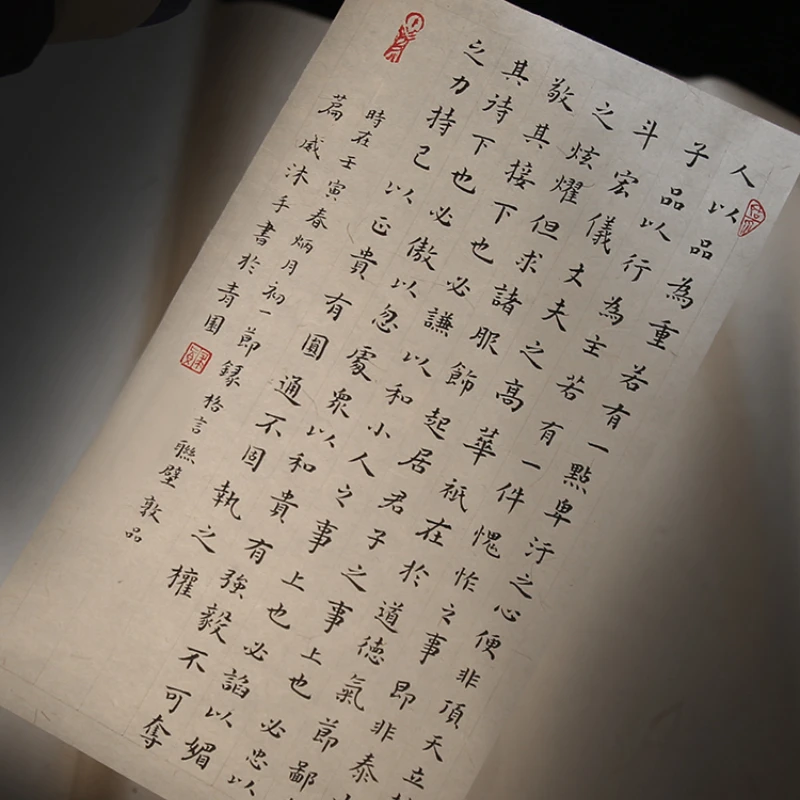 人以品為重若有一點卑汙之心便非頂天立
子品以行為主若有一件愧怍之事即非泰
斗宏儀丈夫之高華祇在於道德氣節鄙
之炫耀但求諸服飾起居君子之事上也必忠以
敬其接下也必謙以和小人之事上也必諂以媚
其待下也必傲以忽處眾以和貴有強毅不可奪
之力持己以正貴有圓通不固執之權
時在壬寅春炳月初一節錄格言聯璧敦品
篇威沐手書於青園